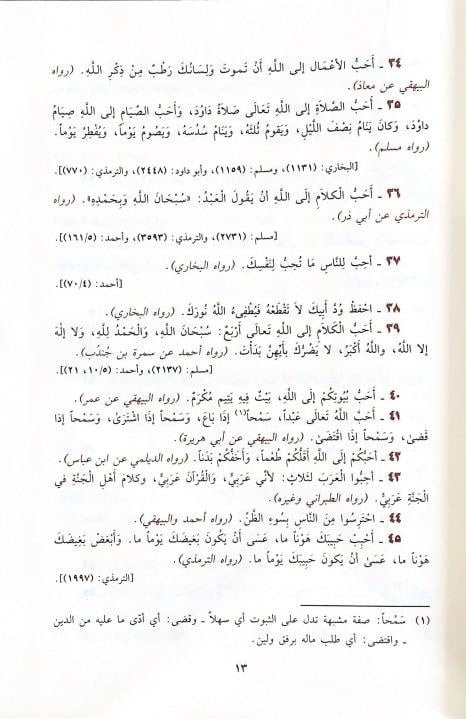 ٣٤ ـ أَحَبُّ الأَعْمَالِ إلى اللَّهِ أَنْ تَموتَ وَلِسَانُكَ رَطْبٌ مِنْ ذِكْرِ اللَّهِ. (رواه
البيهقي عن معاذ).
٣٥ ـ أَحَبُّ الصَّلاَةِ إلى اللَّهِ تَعَالَى صَلاَةُ دَاوُدَ، وَأَحَبُّ الصِّيَامِ إلى اللَّهِ صِيَامُ
داوُدَ، وَكَانَ يَنَامُ نِصْفَ اللَّيْلِ، وَيَقومُ ثُلُثَهُ، وَيَنَامُ سُدُسَهُ، وَيَصُومُ يَوْماً، وَيُفْطِرُ يَوْماً.
(رواه مسلم).
[البخاري: (١١٣١)، ومسلم: (١١٥٩)، وأبو داود: (٢٤٤٨)، والترمذي: (٧٧٠)].
٣٦ ـ أَحَبُّ الْكَلاَمِ إلى اللَّهِ أن يَقُولَ الْعَبْدُ: «سُبْحَانَ اللَّهِ وَبِحَمْدِهِ». (رواه
الترمذي عن أبي ذر).
[مسلم: (٢٧٣١)، والترمذي: (٣٥٩٣)، وأحمد: (١٦١/٥)].
٣٧ ـ أَحِبَّ لِلنَّاسِ مَا تُحِبُّ لِنَفْسِكَ. (رواه البخاري).
[أحمد: (٧٠/٤)].
٣٨ ـ احْفَظْ وُدَّ أَبِيكَ لاَ تَقْطَعْهُ فَيُطْفِىءُ اللَّهُ نُورَكَ. (رواه البخاري).
٣٩ ـ أَحَبُّ الْكَلاَمِ إلى اللَّهِ تَعَالى أَرْبَعٌ: سُبْحَانَ اللَّهِ، وَالْحَمْدُ لِلَّهِ، وَلا إلهَ
إلا اللَّهُ، واللَّهُ أَكْبَرُ، لا يَضُرُّكَ بأَيِّهِنَّ بَدَأتَ. (رواه أحمد عن سمرة بن جُنْدُب).
[مسلم: (٢١٣٧)، وأحمد: (١٠/٥، ٢١)].
٤٠ ـ أَحَبُّ بُيُوتِكُمْ إلى اللَّهِ، بَيْتٌ فِيهِ يَتِيم مُكْرَمٌ. (رواه البيهقي عن عمر).
٤١ ـ أَحَبَّ اللَّهُ تَعَالى عَبْداً، سَمْحاً(١) إذَا بَاعَ، وَسَمْحاً إذَا اشْتَرَىٰ، وَسَمْحاً إذَا
قَضىٰ، وَسَمْحاً إذَا اقْتَضَىٰ. (رواه البيهقي عن أبي هريرة).
٤٢ ـ أحَبُّكُمْ إلى اللَّهِ أَقَلُّكُمْ طُعْماً، وَأَخَفُّكُمْ بَدَناً. (رواه الديلمي عن ابن عباس).
٤٣ ـ أحِبُّوا الْعَرَبَ لثَلاثٍ: لأَنِّي عَرَبِيٌّ، وَالْقُرْآنَ عَرَبيٌّ، وكلامَ أَهْلِ الجَنَّةِ في
الْجَنَّةِ عَرَبِيٌّ. (رواه الطبراني وغيره).
٤٤ ـ احْتَرِسُوا مِنَ النَّاسِ بِسُوءِ الظَّنِّ. (رواه أحمد والبيهقي).
٤٥ ـ أَحْبِبْ حَبِيبَكَ هَوْناً ما، عَسَى أَنْ يَكُونَ بَغِيضَكَ يَوْماً ما. وَأَبْغِضْ بَغِيضَكَ
هَوْناً ما، عَسَىٰ أَنْ يكونَ حَبِيبَكَ يَوْماً ما. (رواه الترمذي).
[الترمذي: (١٩٩٧)].
(١) سَمْحاً: صفة مشبهة تدل على الثبوت أي سهلاً ـ وقضى: أي أدّى ما عليه من الدين
ـ واقتضى: أي طلب ماله برفق ولين.
١٣